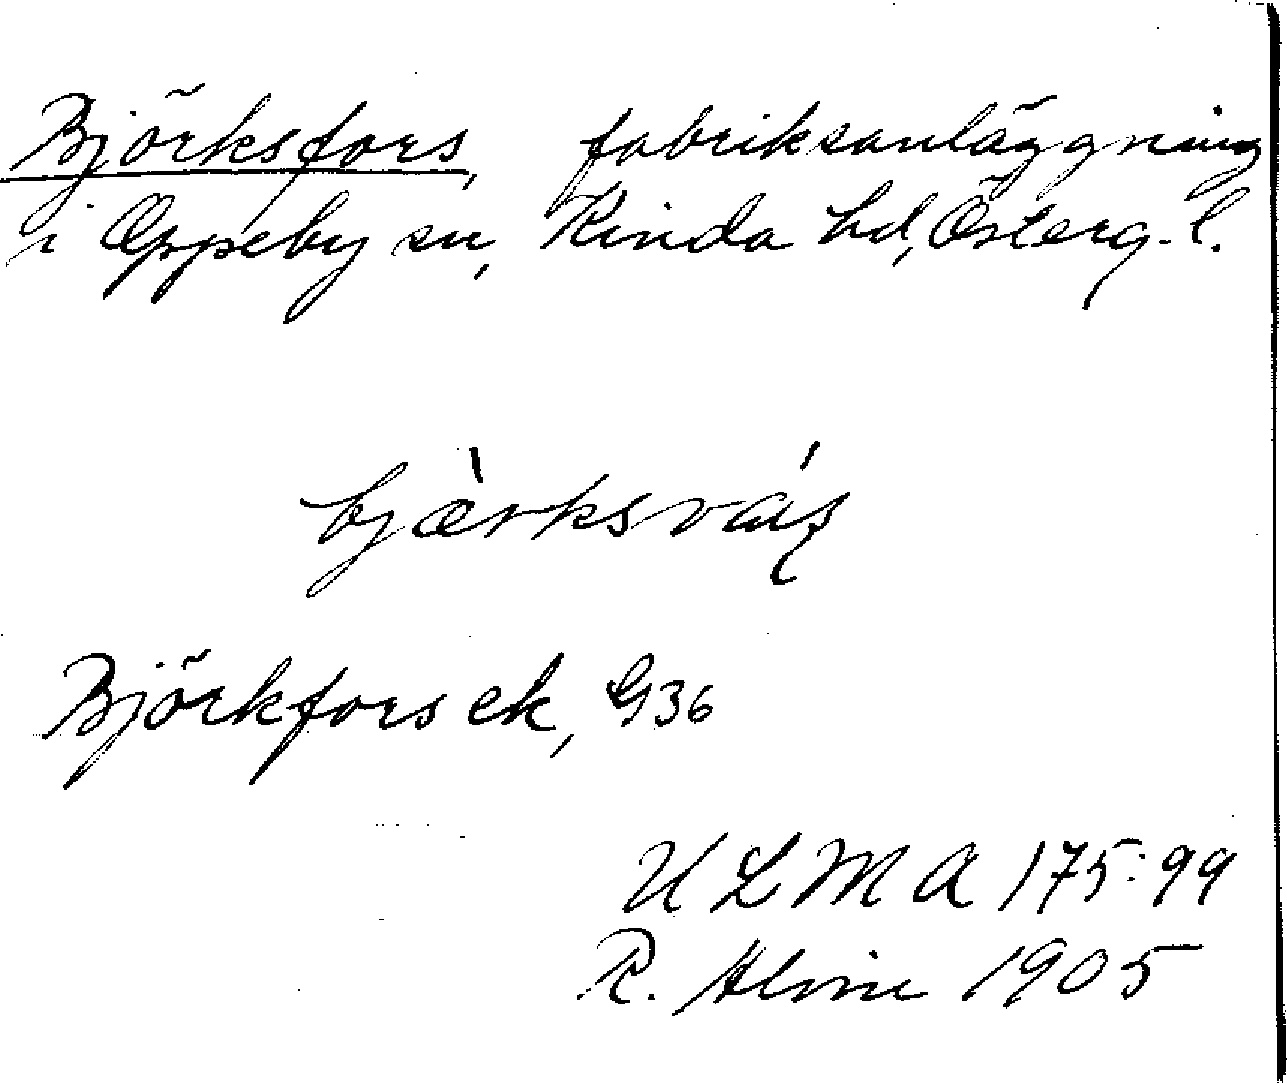 Björksfors, fabriksanläggning
i Oppeby sn, Kinda hd, Österg. l.
Björkfors ek, G36
ULMA 175:99
R. 1905